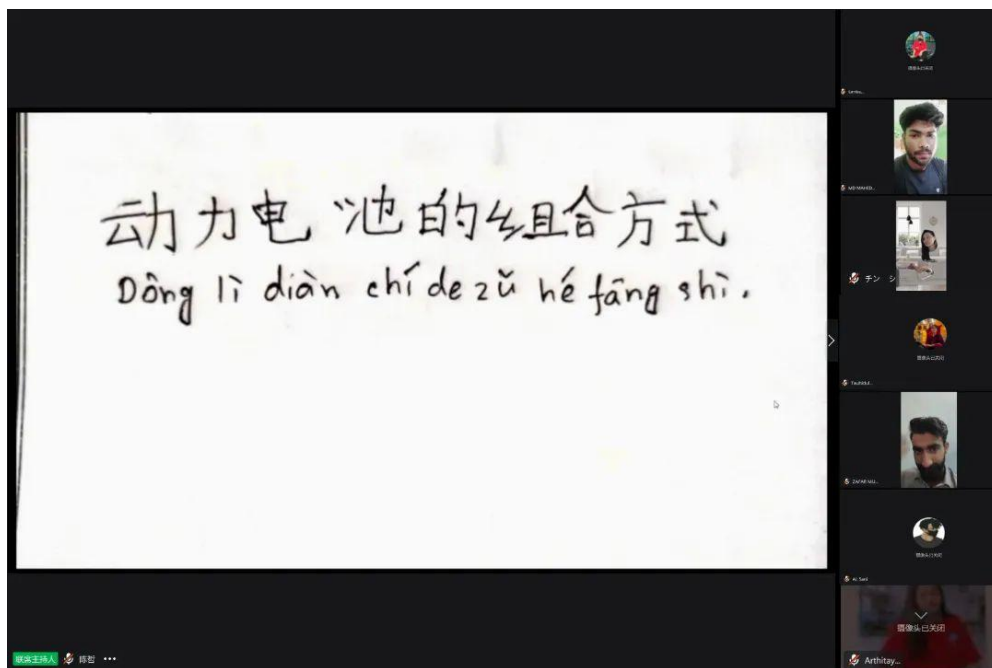 动力电池的组合方式
Dông lì diàn chí de zǔ hé fāng shì.
摄像头已关闭
MD MAHEDI...
チン シ
摄像头已关闭
Tauhidul...
ZAFAR IQU...
摄像头已关闭
摄像头已关闭
Arthitay...
联席主持人 陈哲 •••